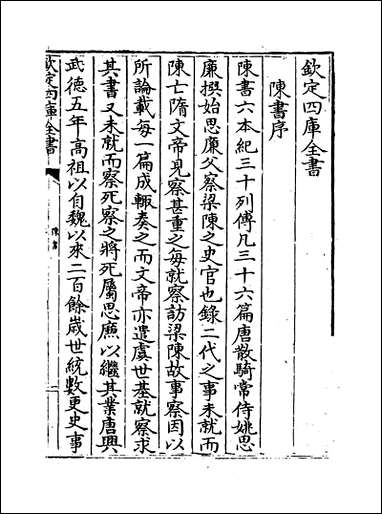 欽定四庫全書
陳書序
陳書六本紀三十列傳凡三十六篇唐散騎常侍姚思
廉撰始思廉父察梁陳之史官也錄二代之事未就而
陳亡隋文帝見察甚重之每就察訪梁陳故事察因以
所論載每一篇成輒奏之而文帝亦遣虞世基就察求
其書又未就而察死察之將死屬思廉以繼其業唐興
武德五年高祖以自魏以來二百餘歲世統數更史事
欽定四庫全書
陳書
一